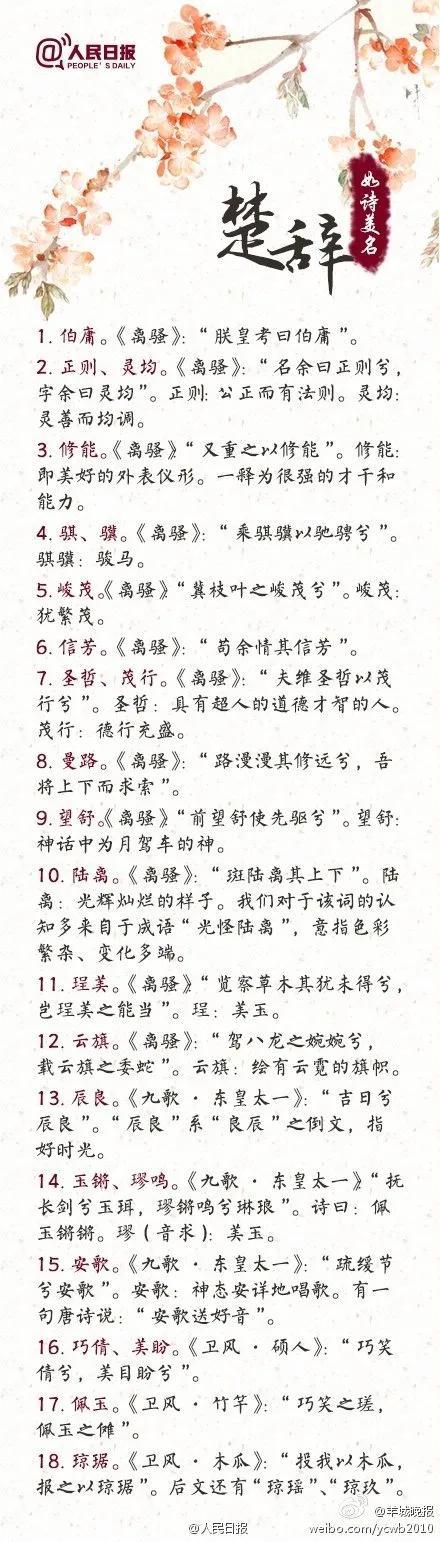 @人民日报
PEOPLE'S DAILY
楚辞
如诗美名
1. 伯庸。《离骚》：“朕皇考曰伯庸”。
2. 正则、灵均。《离骚》：“名余曰正则兮，
字余曰灵均”。正则：公正而有法则。灵均：
灵善而均调。
3. 修能。《离骚》“又重之以修能”。修能：
即美好的外表仪形。一释为很强的才干和
能力。
4. 骐、骥。《离骚》：“乘骐骥以驰骋兮”。
骐骥：骏马。
5. 峻茂。《离骚》“冀枝叶之峻茂兮”。峻茂：
犹繁茂。
6. 信芳。《离骚》：“苟余情其信芳”。
7. 圣哲、茂行。《离骚》：“夫维圣哲以茂
行兮”。圣哲：具有超人的道德才智的人。
茂行：德行充盛。
8. 曼路。《离骚》：“路漫漫其修远兮，吾
将上下而求索”。
9. 望舒。《离骚》“前望舒使先驱兮”。望舒：
神话中为月驾车的神。
10. 陆离。《离骚》：“斑陆离其上下”。陆
离：光辉灿烂的样子。我们对于该词的认
知多来自于成语“光怪陆离”，意指色彩
繁杂、变化多端。
11. 珵美。《离骚》“览察草木其犹未得兮，
岂珵美之能当”。珵：美玉。
12. 云旗。《离骚》：“驾八龙之婉婉兮，
载云旗之委蛇”。云旗：绘有云霓的旗帜。
13. 辰良。《九歌·东皇太一》：“吉日兮
辰良”。“辰良”系“良辰”之倒文，指
好时光。
14. 玉锵、璆鸣。《九歌·东皇太一》“抚
长剑兮玉珥，璆锵鸣兮琳琅”。诗曰：佩
玉锵锵。璆（音求）：美玉。
15. 安歌。《九歌·东皇太一》：“疏缓节
兮安歌”。安歌：神态安详地唱歌。有一
句唐诗说：“安歌送好音”。
16. 巧倩、美盼。《卫风·硕人》：“巧笑
倩兮，美目盼兮”。
17. 佩玉。《卫风·竹竿》：“巧笑之瑳，
佩玉之傩”。
18. 琼琚。《卫风·木瓜》：“投我以木瓜，
报之以琼琚”。后文还有“琼瑶”、“琼玖”。
@人民日报
@羊城晚报
weibo.com/ycwb2010